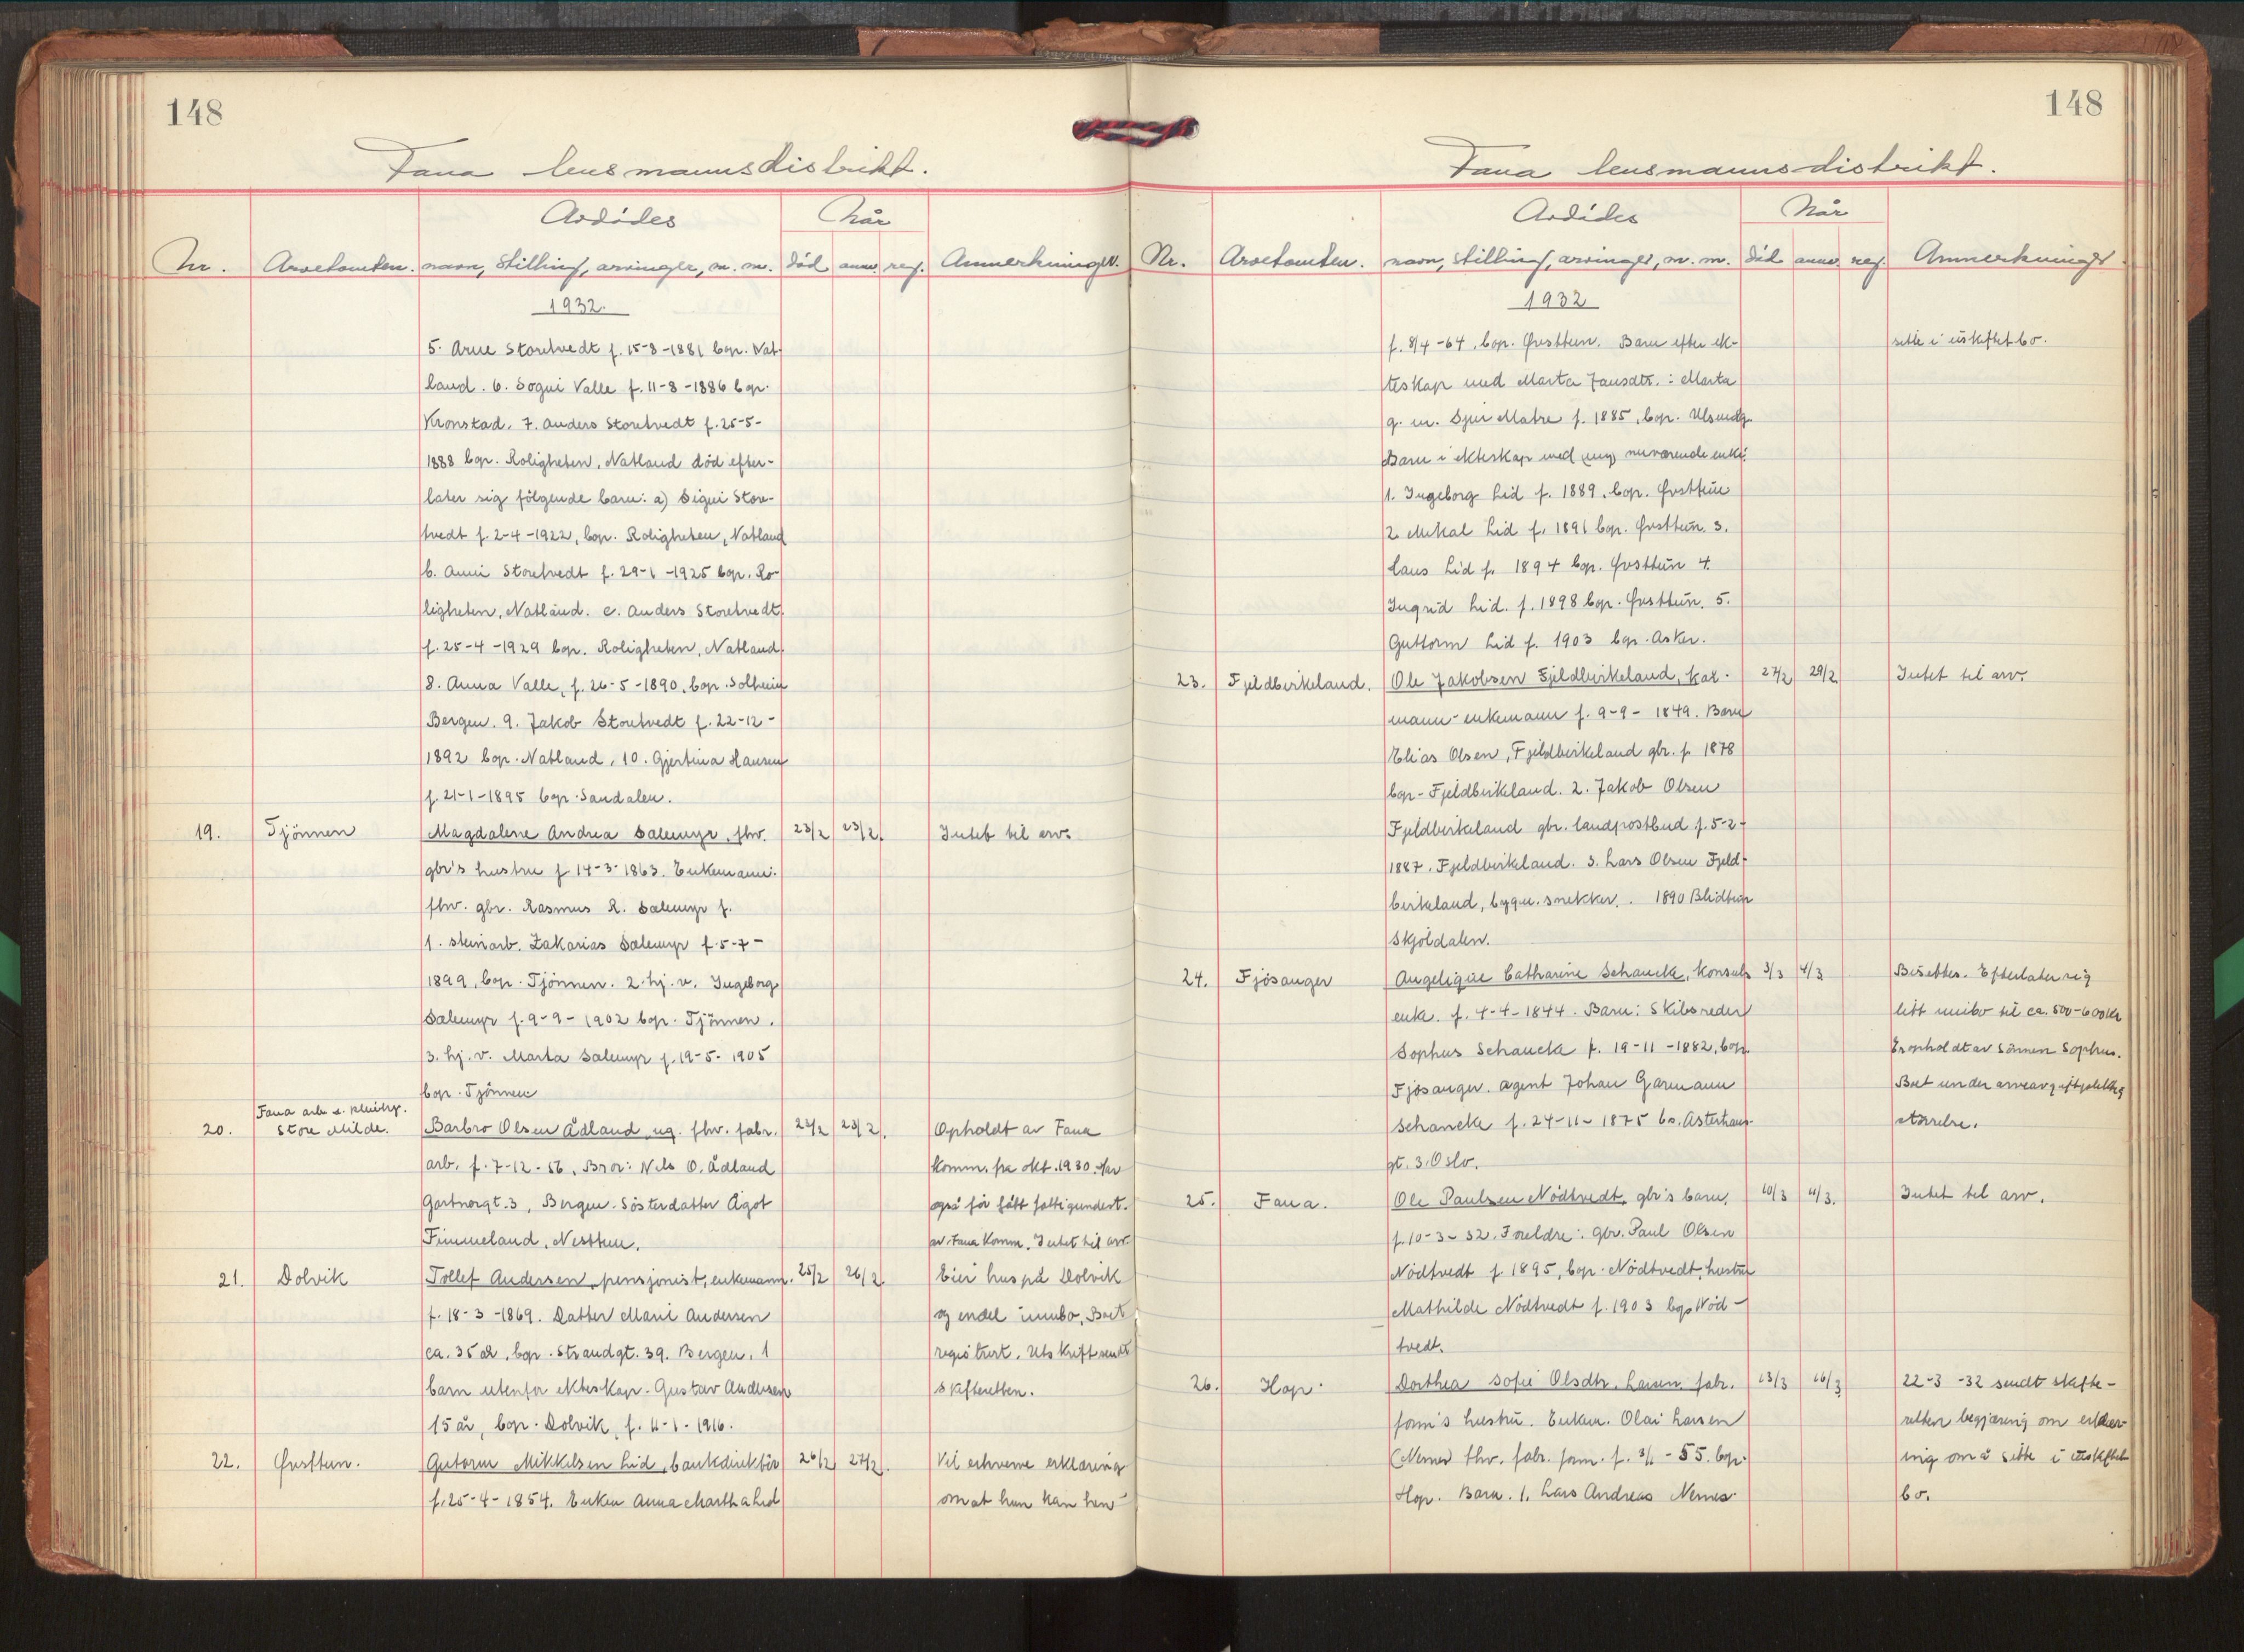 148
Fana lensmannsdistrikt.
Avdødes
Når
Nr. Arvetomten. navn, stilling, arvinger, m. m. død anm. reg. Anmerkninger.
1932.
5. Arne Storetvedt f. 15-8-1881 bop. Nat-
land. 6. Sogni Valle f. 11-8-1886 bop.
Kronstad. 7. Anders Storetvedt f. 25-5-
1888 bop. Roligheten, Natland død efter-
later sig følgende barn: a) Signi Store-
tvedt f. 2-4-1922, bop. Roligheten, Natland
b. Anni Storetvedt f. 29-1-1925 bop. Ro-
ligheten, Natland. c. Anders Storetvedt
f. 25-4-1929 bop. Roligheten, Natland.
8. Anna Valle, f. 26-5-1890, bop. Solheim
Bergen. 9. Jakob Storetvedt f. 22-12-
1892 bop. Natland, 10. Gjertina Hansen
f. 21-1-1895 bop. Sandalen.
19. Tjönnen Magdalene Andrea Salemyr, fhv. 23/2 23/2. Intet til arv.
gbr's hustru f 14-3-1863. Enkemann:
fhv. gbr. Rasmus R. Salemyr f.
1. steinarb. Zakarias Salemyr f. 5-7-
1899, bop. Tjönnen. 2. hj. v. Ingeborg
Salemyr f. 9-9-1902 bop. Tjönnen.
3. hj. v. Marta Salemyr f. 19-5-1905
bop. Tjönnen
Fana arb. &
20. Store Milde. Barbro Olsen Ådland ug. fhv. fabr. 22/2 23/2. Opholdt av Fana
arb. f. 7-12-56, Bror: Nils O. Ådland komm. fra okt. 1930. Har
Gartnergt. 3, Bergen. Sösterdatter Ågot også för fått fattigunderst.
Fimmeland, Nesttun. av Fana Komm. Intet til arv.
21. Dolvik Tollef Andersen, pensjonist, enkemann. 25/2 26/2 Eier hus på Dolvik
f. 18-3-1869. Datter Marie Andersen og endel innbo, Boet
ca. 35 år, bop. Strandgt. 39. Bergen. 1 registrert. Utskrift sendt
barn utenfor ekteskap. Gustav Andersen skifteretten.
15 år, bop. Dolvik, f. 4-1-1916.
22. Øvsttun. Gutorm Mikkelsen Lid, bankdirektör 26/2 27/2. Vil erhverve erklæring
f. 25-4-1854. Enken Anna Martha Lid om at hun kan hen-
148
Fana lensmannsdistrikt.
Avdødes
Når
Nr. Arvetomten. navn, stilling, arvinger, m. m. død anm. reg. Anmerkninger
1932
f. 8/4-64, bop. Øvsttun. Barn efter ek- sitte i uskiftet bo.
teskap med Marta Jansdtr.: Marta
g. m. Sjur Matre f. 1885, bop.
Barn i ekteskap med nuværende enke:
1. Ingeborg Lid f. 1889, bop. Øvsttun
2. Mikal Lid f. 1891 bop. Øvsttun. 3.
Laus Lid f. 1894 bop. Øvsttun 4.
Ingrid Lid. f. 1898 bop. Øvsttun. 5.
Guttorm Lid f. 1903 bop. Asker.
23. Fjeldbirkeland. Ole Jakobsen Fjeldbirkeland, kår- 27/2 29/2 Intet til arv.
mann-enkemann f. 9-9-1849. Barn
Elias Olsen, Fjeldbirkeland gbr. f. 1878
bop- Fjeldbirkeland. 2. Jakob Olsen
Fjeldbirkeland gbr. landpostbud f. 5-2-
1887. Fjeldbirkeland. 3. Lars Olsen Fjeld-
birkeland, bygn. snekker. 1890 Blidtun
Skjoldalen.
24. Fjösanger Angelique Catharine Schancke, Konsuls 3/3 4/3 Bisettes. Efterlater sig
enke. f. 4-4-1844. Barn: Skibsreder litt innbo til ca. 500-600 kr
Sophus Schancke f. 19-11-1882, bop. Er opholdt av sönnen Sophus.
Fjösanger. agent Johan Garmann Boet under arveavgiftpliktig
Schancke f. 24-11-1875 bo. størrelse.
gt. 3. Oslo.
25. Fana. Ole Paulsen Nödtvedt, gbr's barn. 10/3 11/3. Intet til arv.
f. 10-3-32. Foreldre: gbr. Paul Olsen
Nödtvedt f. 1895, bop. Nödtvedt, hustru
Mathilde Nödtvedt f. 1903 bop Nöd-
tvedt.
26. Hop. Dorthea Sofie Olsdtr. Larsen, fabr. 13/3 16/3 22-3-32 sendt skifte-
form's hustru. Enkem. Olai Larsen retten begjæring om erklær-
(Nemes fhv. fabr. form. f. 3/1-55. bop. ing om å sitte i uskiftet
Hop. Barn. 1. Lars Andreas Nemes bo.